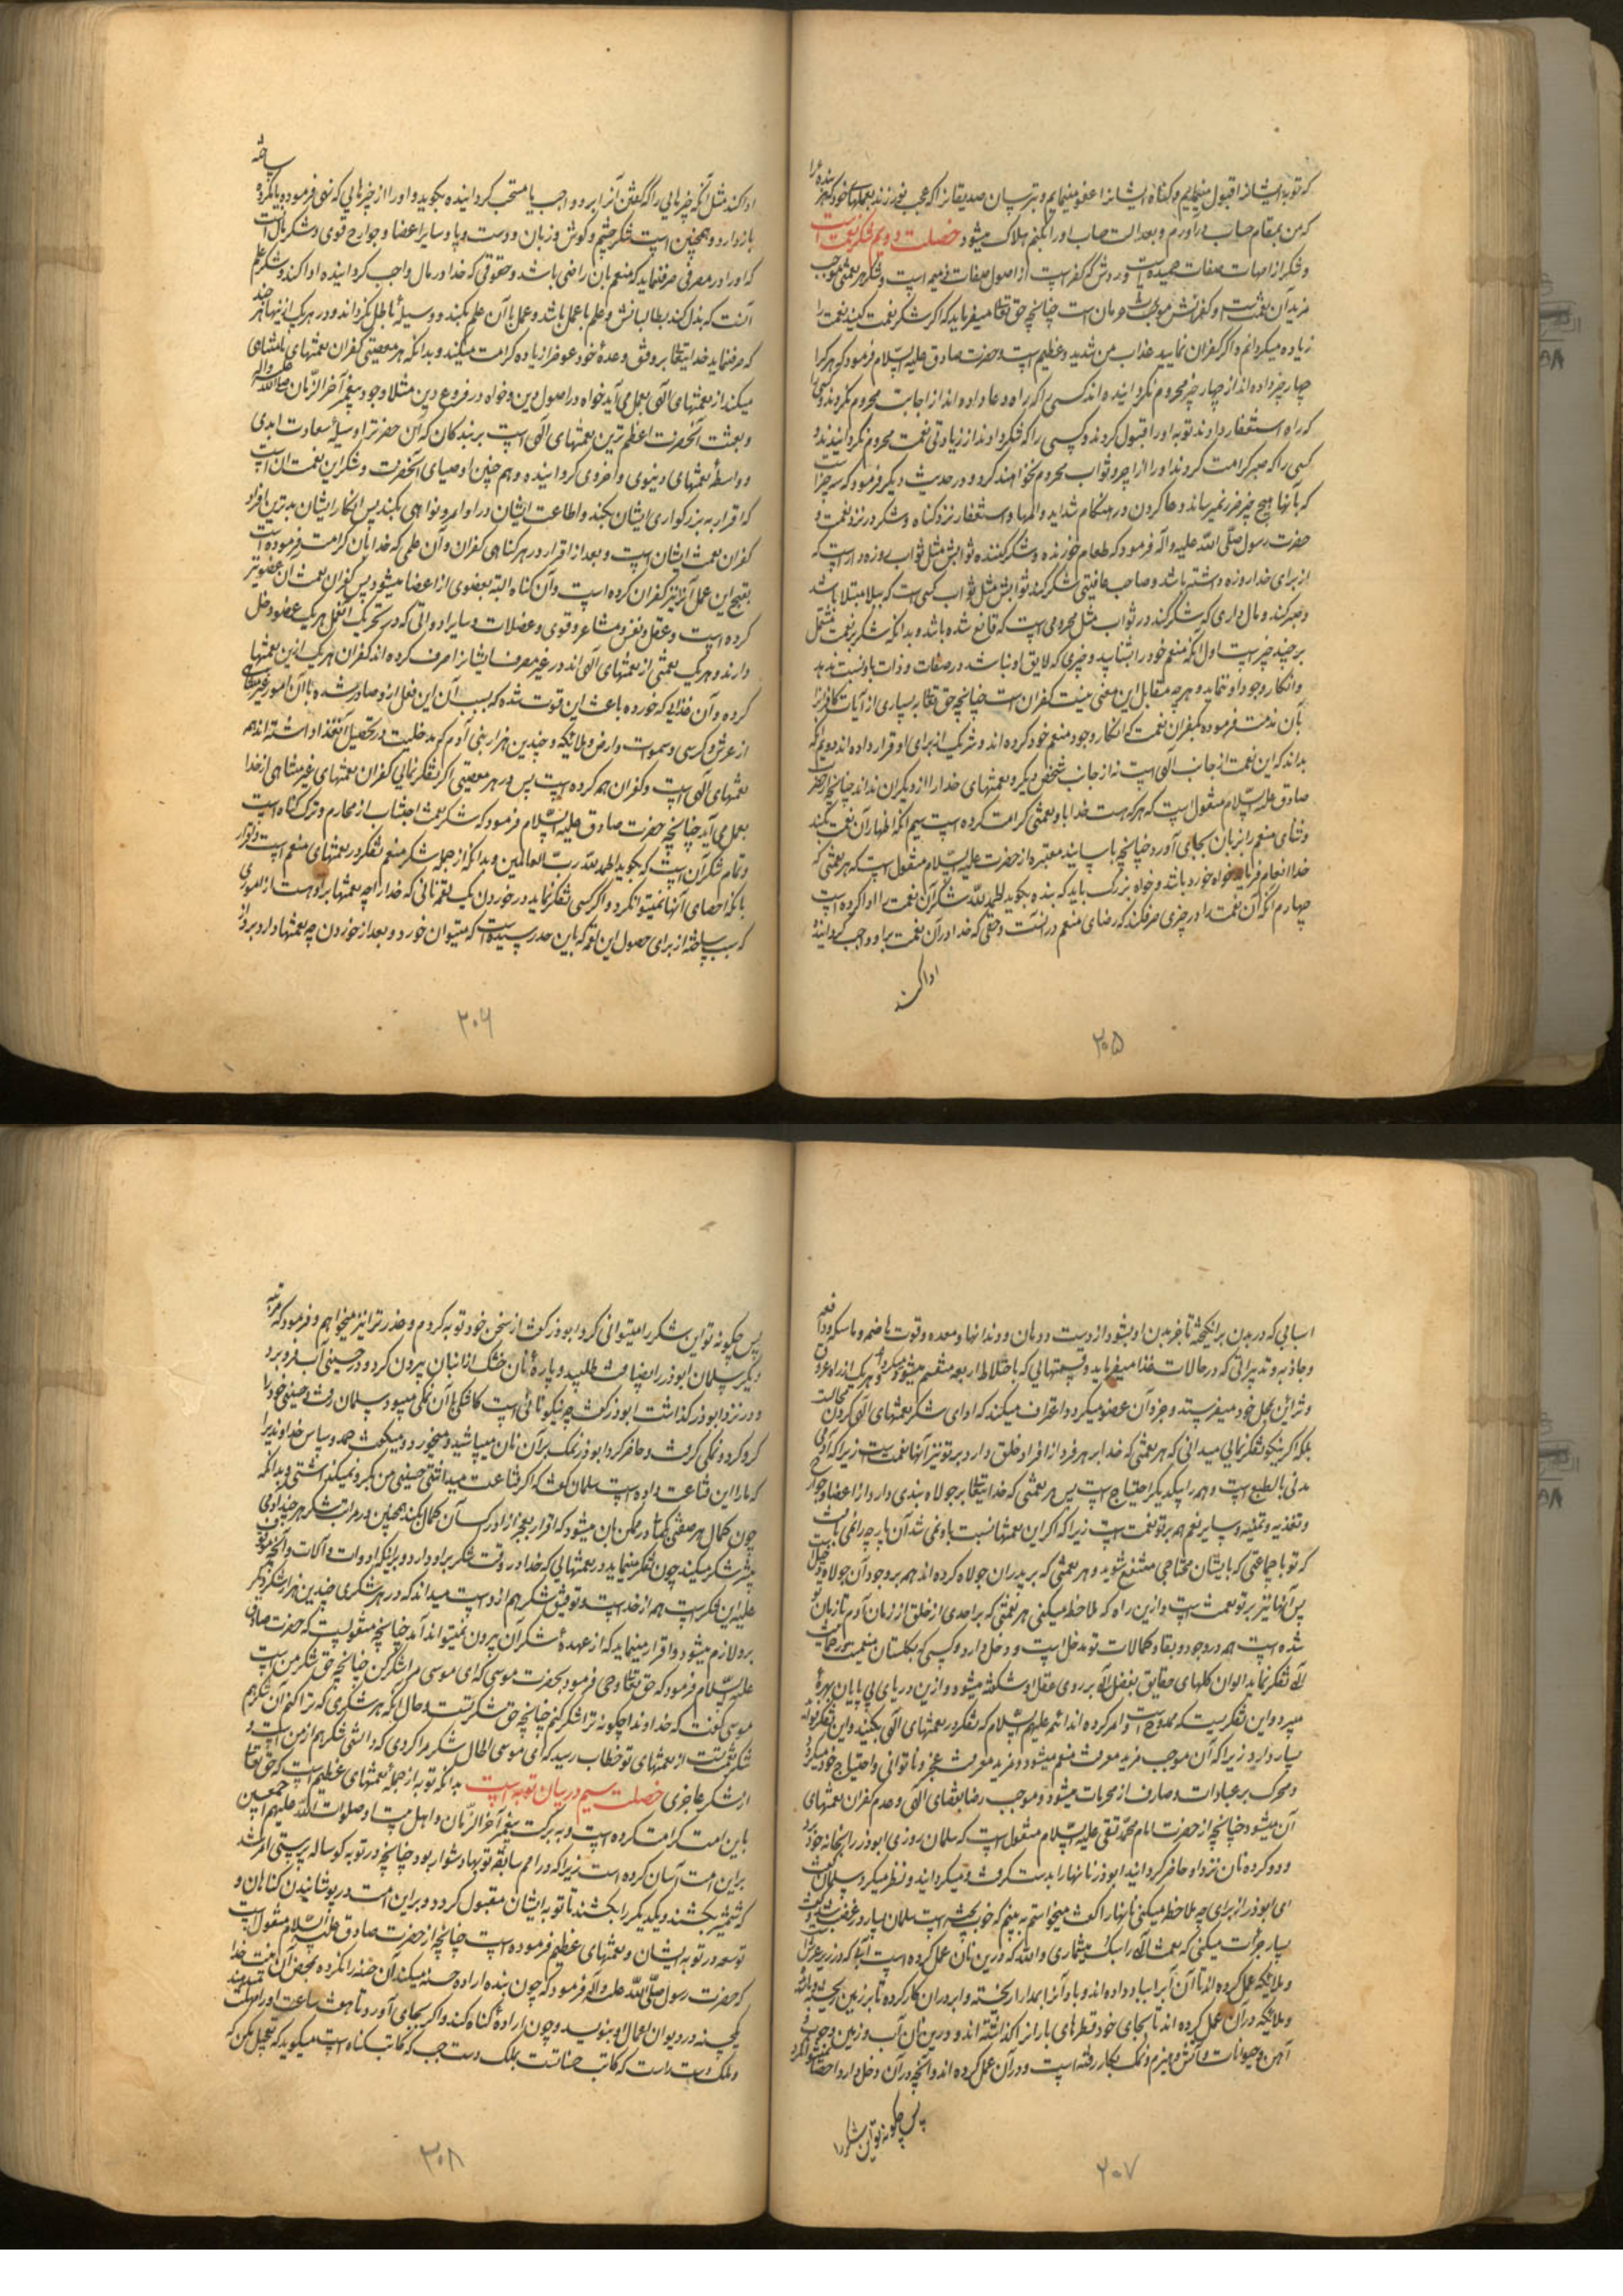 که توبه ایشانرا قبول مینمایم و کناه ایشانرا عفو مینمایم و بترسان صدیقانرا که عجب نورزند بعملهای خود که هر بنده را
که من بمقام حساب درآورم و بعدالت حساب او را بکنم هلاک میشود خصلت دویم شکر نعمت است
و شکر از امهات صفات حمیده است و ضدش که کفر است از اصول صفات ذمیمه است و شکر هر نعمتی موجب
مزید آن نعمتست و کفرانش موجب حرمان است چنانچه حق تعالی میفرماید که اکر شکر نعمت کنید نعمت را
زیاده میکردانم و اکر کفران نمایید عذاب من شدید و عظیم است و حضرت صادق علیه السّلام فرمود که هر کرا
چهار چیز داده اند از چهار چیز محروم نکردانیده اند کسی را که راه دعا داده اند از اجابت محروم نکردند و کسی را
که راه استغفار دادند توبه او را قبول کردند و کسی را که شکر دادند از زیادتی نعمت محروم نکردانیدند و
کسی را که صبر کرامت کردند او را از اجر و ثواب محروم نخواهند کرد و در حدیث دیکر فرمود که سه چیز است
که با آنها هیچ چیز ضرر نمیرساند دعا کردن در هنکام شداید و المها و استغفار نزد کناه و شکر در نزد نعمت و
حضرت رسول صلّی الله علیه و آله فرمود که طعام خورنده و شکر کننده ثوابش مثل ثواب روزه دار است که
از برای خدا روزه داشته باشد و صاحب عافیتی شکر کند ثوابش مثل ثواب کسی است که ببلا مبتلا باشد
و صبر کند و مال داری که شکر کند در ثواب مثل محرومی است که قانع شده باشد و بدانکه شکر بر نعمت مشتمل
بر چند چیز است اول آنکه منعم خود را بشناسد و چیزی که لایق او نباشد در صفات و ذات باو نسبت ندهد
و انکار وجود او ننماید و هر چه مقابل این معنی نیست کفران است چنانچه حق تعالی در بسیاری از آیات کافرانرا
بآن مذمت فرموده بکفران نعمت که انکار وجود منعم خود کرده اند و شریک از برای او قرار داده اند دویم آنکه
بداند که این نعمت از جانب آلهی است نه از جانب شخص دیکر و نعمتهای خدا را از دیکران نداند چنانچه از حضرت
صادق علیه السّلام منقول است که هر که هست خدا باو نعمتی کرامت کرده است سیم آنکه اظهار آن نعمت بکند
و ثنای منعم را بزبان بجای آورد چنانچه باسانید معتبره از حضرت علیه السّلام منقول است که هر نعمتی که
خدا انعام فرماید خواه خورد باشد و خواه بزرک باید که بنده بکوید الحمد لله شکر آن نعمت را ادا کرده است
چهارم آنکه آن نعمت را در چیزی صرف کند که رضای منعم در آنست و حقی که خدا در آن نعمت بر او واجب کردانیده
ادا کند
۲۰۵
ساخته
ادا کند مثل آنکه چیزهایی را که کفتن آنرا بر او واجب یا مستحب کردانیده بکوید و او را از چیزهایی که نهی فرموده یا مکروه
باز دارد و همچنین است شکر چشم و کوش و زبان و دست و پا و سایر اعضا و جوارح قوی و شکر مال آنست
که او را در مصرفی صرف نماید که منعم بآن راضی باشد و حقوقی که خدا در مال واجب کردانیده ادا کند و شکر علم
آنست که بذل کند بطالبانش و علم با عمل باشد و عمل بآن علم بکند و وسیلهٔ باطل نکرداند و در هر یک از اینها هر چند
که صرف نماید خدایتعالی بر وفق وعدهٔ خود عوض را زیاده کرامت میکند و بدانکه هر معصیتی کفران نعمتهای نامتناهی
میکند از نعمتهای آلهی بعمل می آید خواه در اصول دین و خواه در فروع دین مثلا وجود پیغمبر آخر الزّمان صلّی الله علیه و اله
و بعثت آنحضرت اعظم ترین نعمتهای الهی است بر بندکان که این حضرترا وسیلهٔ سعادت ابدی
و واسطهٔ نعمتهای دنیوی و اخروی کردانیده و هم چنین اوصیای آنحضرت و شکر این نعمت آن است
که اقرار به بزرکواری ایشان بکند و اطاعت ایشان در اوامر و نواهی بکند پس انکار ایشان بدترین افراد
کفران نعمت ایشان است و بعد از اقرار در هر کناهی کفران و آن علمی که خدا بآن کرامت فرموده است
بقبح این عمل آنرا نیز کفران کرده است و آن کناه البته بعضوی از اعضا میشود پس کفران نعمت آن عضو نیز
کرده است و عقل و نفس و مشاعر و قوی و عضلات و سایر ادواتی که در تحریک آن فعل هر یک عضو دخل
دارند و هر یک نعمتی از نعمتهای آلهی اند در غیر مصرف ایشانرا صرف کرده اند کفران هر یک از این نعمتها
کرده و آن غذایی که خورده باعث این قوت شده که بسبب آن این فعل از او صادر شده با آن امور غیر متناهی
از عرش و کرسی و سموات و ارض و ملائکه و چندین هزار بنی آدم که مدخلیت در تحصیل آن غذا داشته اند همه
نعمتهای آلهی است و کفران همه کرده است پس در هر معصیتی اکر تفکر نمائی کفران نعمتهای غیر متناهی از خدا
بعمل می آید چنانچه حضرت صادق علیه السّلام فرمود که شکر نعمت اجتناب از محارم و ترک کناه است
و تمام شکر آن است که بکوید الحمد لله ربّ العالمین و بدانکه از جمله شکر منعم تفکر در نعمتهای منعم است و اقرار
بآنکه احصای آنها نمیتوان کرد و اکر کسی تفکر نماید در خوردن یک لقمه نانی که خدا را چه نعمتها بر اوست از اموری
که سبب ساخته از برای حصول این لقمه که باین حد رسیده است که میتوان خورد و بعد از خوردن چه نعمتها دارد بر او از
۲۰۶
اسبابی که در بدن برانکیخته تا جزو بدن او بشود از دست و دهان و دندانها و معده و قوت هاضمه و ماسکه و دافعه
و جاذبه و تدبیراتی که در حالات غذا میفرماید و قسمتهایی که باخلاط اربعه منقسم میشود و هر یک از راه عروق
و شرائین بمحل خود میفرستد و جزو آن عضو میکردد اعتراف میکند که ادای شکر نعمتهای آلهی کردن محالست
بلکه اکر نیکو تفکر نمایی میدانی که هر نعمتی که خدا بر هر فرد از افراد خلق دارد بر تو نیز آنها نعمت است زیرا که آدمی
مدنی بالطبع است و همه را بیکدیکر احتیاج است پس هر نعمتی که خدایتعالی بر جولاه بندی دارد از اعضا و جوارح
و تغذیه و تنمیه و سایر نعم هم بر تو نعمت است زیرا که اکر این نعمتها نسبت باو نمی شد آن پارچه را نمی بافت
که تو با جماعتی که بایشان محتاجی منتفع شوید و هر نعمتی که بر پدران جولاه کرده اند هم بر وجود آن جولاه دخیل است
پس آنها نیز بر تو نعمت است و ازین راه که ملاحظه میکنی هر نعمتی که بر احدی از خلق از زمان آدم تا زمان تو
شده است همه در وجود و بقا و کمالات تو مدخل است و دخل دارد و کسی که بکلستان نعمت
لآله تفکر نماید الوان کلهای حقایق بفضل اله بر روی عقل او شکفته میشود و ازین دریای بی پایان بهرهٔ
میبرد و این تفکریست که ممدوح است و امر کرده اند ائمه علیهم السّلام که تفکر در نعمتهای آلهی بکنید و این تفکر فواید
بسیار دارد زیرا که آن موجب مزید معرفت منعم میشود و مزید معرفت عجز و ناتوانی و احتیاج خود میکردد
و محرک بر عبادات و صارف از محرمات میشود و موجب رضا بقضای الهی و عدم کفران نعمتهای
آن میشود چنانچه از حضرت امام محمّد تقی علیه السّلام منقول است که سلمان روزی ابوذر را بخانه خود برد
و دو کرده نان نزد او حاضر کردانید ابوذر نانها را بدست کرفت و میکردانید و نظر میکرد سلمان کفت
ای ابوذر از برای چه ملاحظه میکنی نانها را کفت میخواستم به بینم که خوب پخته است سلمان بسیار در غضب شد و کفت
بسیار جرأت میکنی که نعمتهای الهی را سبک میشماری والله که درین نان عمل کرده است آبی که در زیر عرش است
و ملائکه عمل کرده اند تا آن آب را بباد داده اند و باد آنرا بمدار ریخته و ابر در آن کار کرده تا بر زمین ریخته و رعد
و ملائکه در آن عمل کرده اند تا بجای خود قطرهای بارانرا کذاشته اند و درین نان آب و زمین و چوب و
آهن و حیوانات و آتش و هیزم و نمک بکار رفته است و در آن عمل کرده اند و آنچه در آن دخل دارد احصا نمیتوان کرد
پس چکونه تو این شکر را
۲۰۷
پس چکونه تو این شکر را میتوانی کرد ابوذر کفت از سخن خود توبه کردم و عذر ترا نیز میخواهم و فرمود که مرتبه
دیکر سلمان ابوذر را بضیافت طلبید و پارهٔ نان خشک از انبان بیرون کرد و در حسینی آب فرو برد
و در نزد ابوذر کذاشت ابوذر کفت چه نیکو نانی است کاشکی با آن نمکی میبود سلمان رفت و حسینی خود را
کرو کرد و نمکی کرفت و حاضر کرد ابوذر نمک بر آن نان میپاشید و میخورد و میکفت حمد و سپاس خداوندیرا
که ما را این قناعت داده است سلمان کفت که اکر قناعت میداشتی حسینی من بکرو نمیکذاشتی و بدانکه
چون کمال هر صفتی در ممکن بآن میشود که اقرار بعجز از ادراک آن کمال بکند همچنین در مراتب شکر هر چند آدمی
بیشتر شکر میکند چون تفکر مینماید در نعمتهایی که خدا در وقت شکر بر او دارد و بر اینکه ادوات و آلات و آنچه موقوف
علیه این شکر است همه از خداست و توفیق شکر هم از اوست میداند که در هر شکری چندین هزار شکر دیکر
بر او لازم میشود و اقرار مینماید که از عهدهٔ شکر آن بیرون نمیتواند آمد چنانچه منقولست که حضرت صادق
علیه السّلام فرمود که حق تعالی وحی فرمود بحضرت موسی که ای موسی مرا شکر کن چنانچه حق شکر من است
موسی کفت که خداوندا چکونه ترا شکر کنم چنانچه حق شکر تست و حال آنکه هر شکری که ترا کنم آن شکر هم
نعمتیست از نعمتهای تو خطاب رسید که ای موسی الحال شکر مرا کردی که دانستی شکر هم از من است و
از شکر عاجزی خصلت سیم در بیان توبه است بدانکه توبه از جملهٔ نعمتهای عظیم است که حق تعالی
باین امت کرامت کرده است و به برکت پیغمبر آخر الزّمان و اهل بیت او صلوات الله علیهم اجمعین
بر این امت آسان کرده است زیرا که در امم سابقه توبهها دشوار بود چنانچه در توبه کوساله پرستی امر شد
که شمشیر بکشند و یکدیکر را بکشند تا توبه ایشان مقبول کردد و بر این امت در پوشانیدن کناهان و
توسعه در توبه ایشان نعمتهای عظیم فرموده است چنانچه از حضرت صادق علیه السّلام منقول است
که حضرت رسول صلّی الله علیه و آله فرمود که چون بنده اراده حسنه میکند و آن حسنه را نکرده بمحض آن نیت خدا
یکحسنه در دیوان اعمال او مینویسد و چون ارادهٔ کناه کند و اکر بجای آورد تا هفت ساعت او را مهلت میدهند
و ملک دست راست که کاتب حسناتست بملک دست چپ که کاتب کناه است میکوید که تعجیل مکن که
۲۰۸